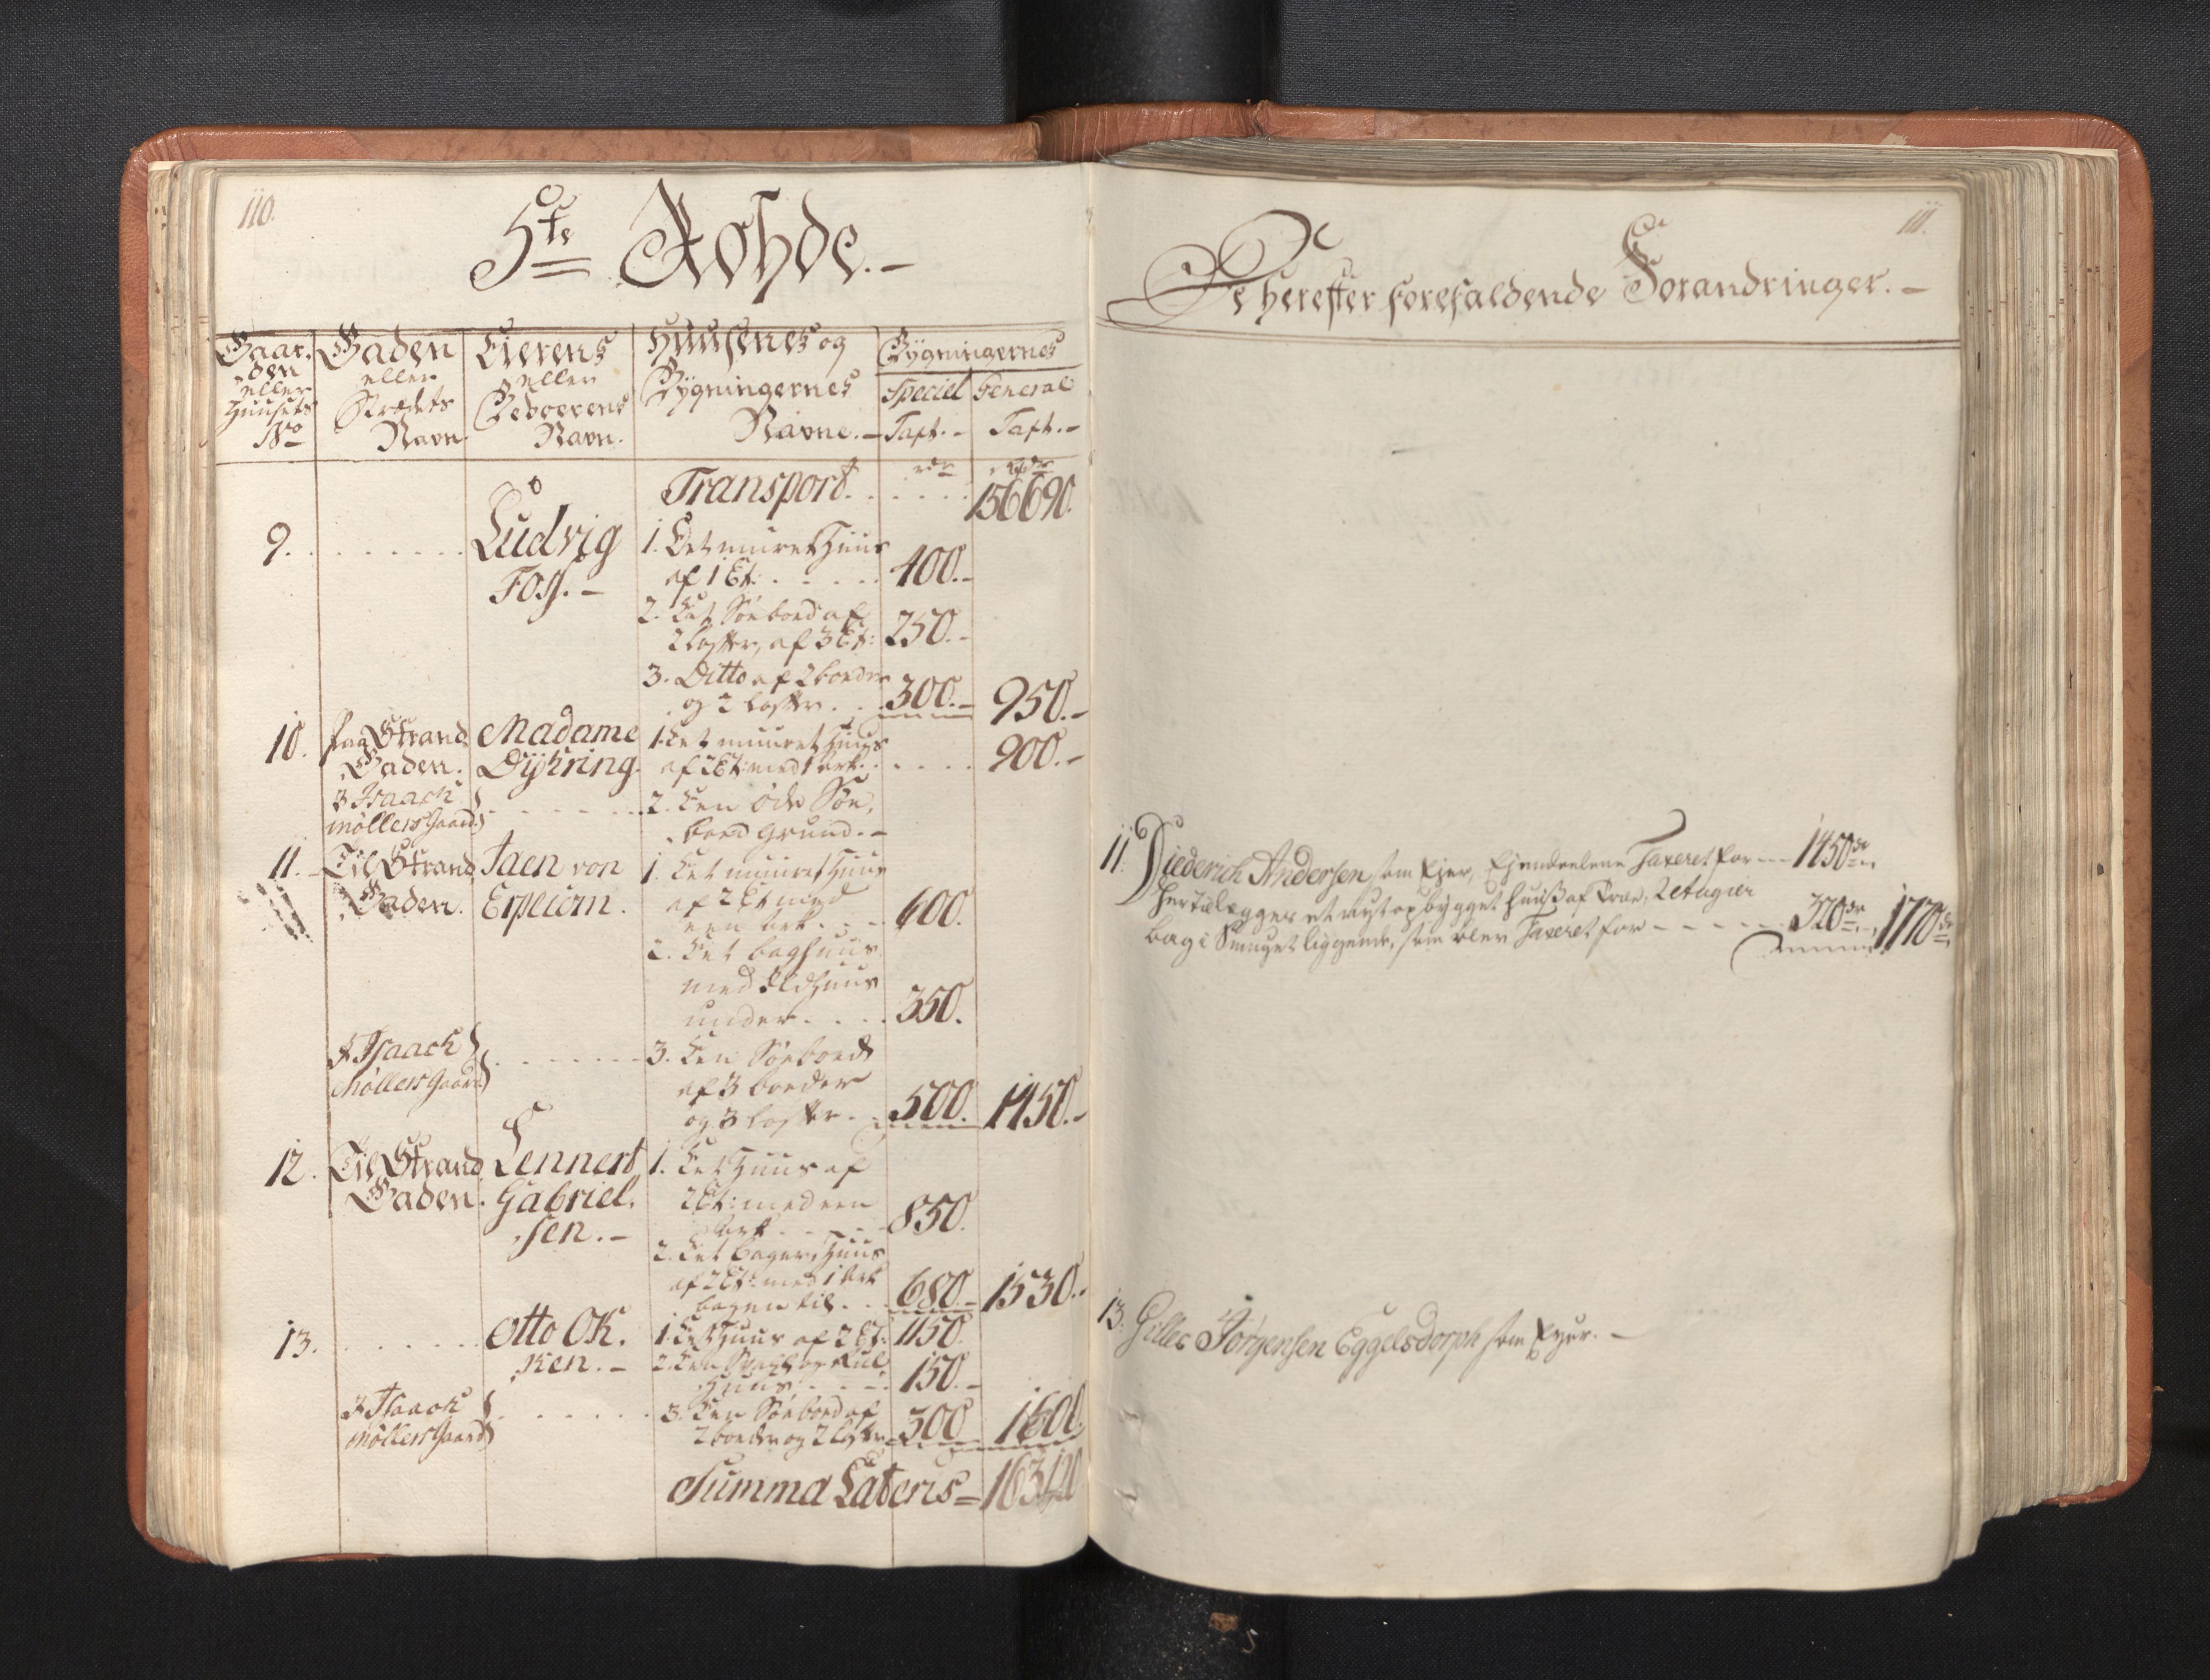 110.
5te Rohde.-
Gaar-
den
eller
Huusets
No
Gaden
eller
Strædets
Navn
Eierens
eller
Beboerens
Navn.
Huusenes og
Bÿgningernes
Navne.-
Bÿgningernes
Speciel
Taxt.-
General
Taxt.-
Transport. . . . . . 156690.
9. . . . . . . . Ludvig
Foss.-
1. Et muret Huus
af 1 Et: . . . . . 400.-
2. Et Søeboed af
2 lofter, af 3 Et: 250.-
3. Ditto af 2 boeder
og 2 lofter . . . 300.- 950.-
10. paa Strand
Gaden. Madame
Dÿhring. 1. Et muuret Huus
af 2 Et: med 1 Ark. . . . . . 900.-
I Isaach
Møllers Gaard) . . . . . . 2. Een øde Søe-
boed Grund.-
11. Til Strand
Gaden. Jaen von
Erpecom. 1. Et muuret Huus
af 2 Et med
een Ark . . . 600.
2. Et baghuus
med Ildhuus
under . . . . 350.
I Isaach
Møllers Gaard) . . . . . . . 3. Een Søeboed
af 3 boeder
og 3 lofter . . 500. 1450.-
12. Til Strand
Gaden. Lennert
Gabriel-
sen.- 1. Et Huus af
2 Et: med een
Ark . . . . . 850.
2. Et bager Huus
af 2 Et: med 1 Ark
bagentil . . . 680.- 1530.-
13. . . . . . . Otto Ok-
ken.- 1. Et Huus af 2 Et: 1150.
2. Een
Huus . . . . 150.-
I Isaach
Møllers Gaard) . . . . . . 3. Een Søeboed af
2 boeder og 2 lofter 300 1600.
Summa Lateris = 163120
111.
De herefter forefaldende Forandringer.-
11. Diederich Andersen som Ejer, Ejendeelene Taxeret for --- 1450 dr
Hertillegges et nyt opbygget Huuss af Træe, 2 etagier
bag i Smuget liggende, som blev Taxeret for - - - - - 320 dr 1770 dr
13. Gilles Jørgensen Eggelsdorph som Ejer.-